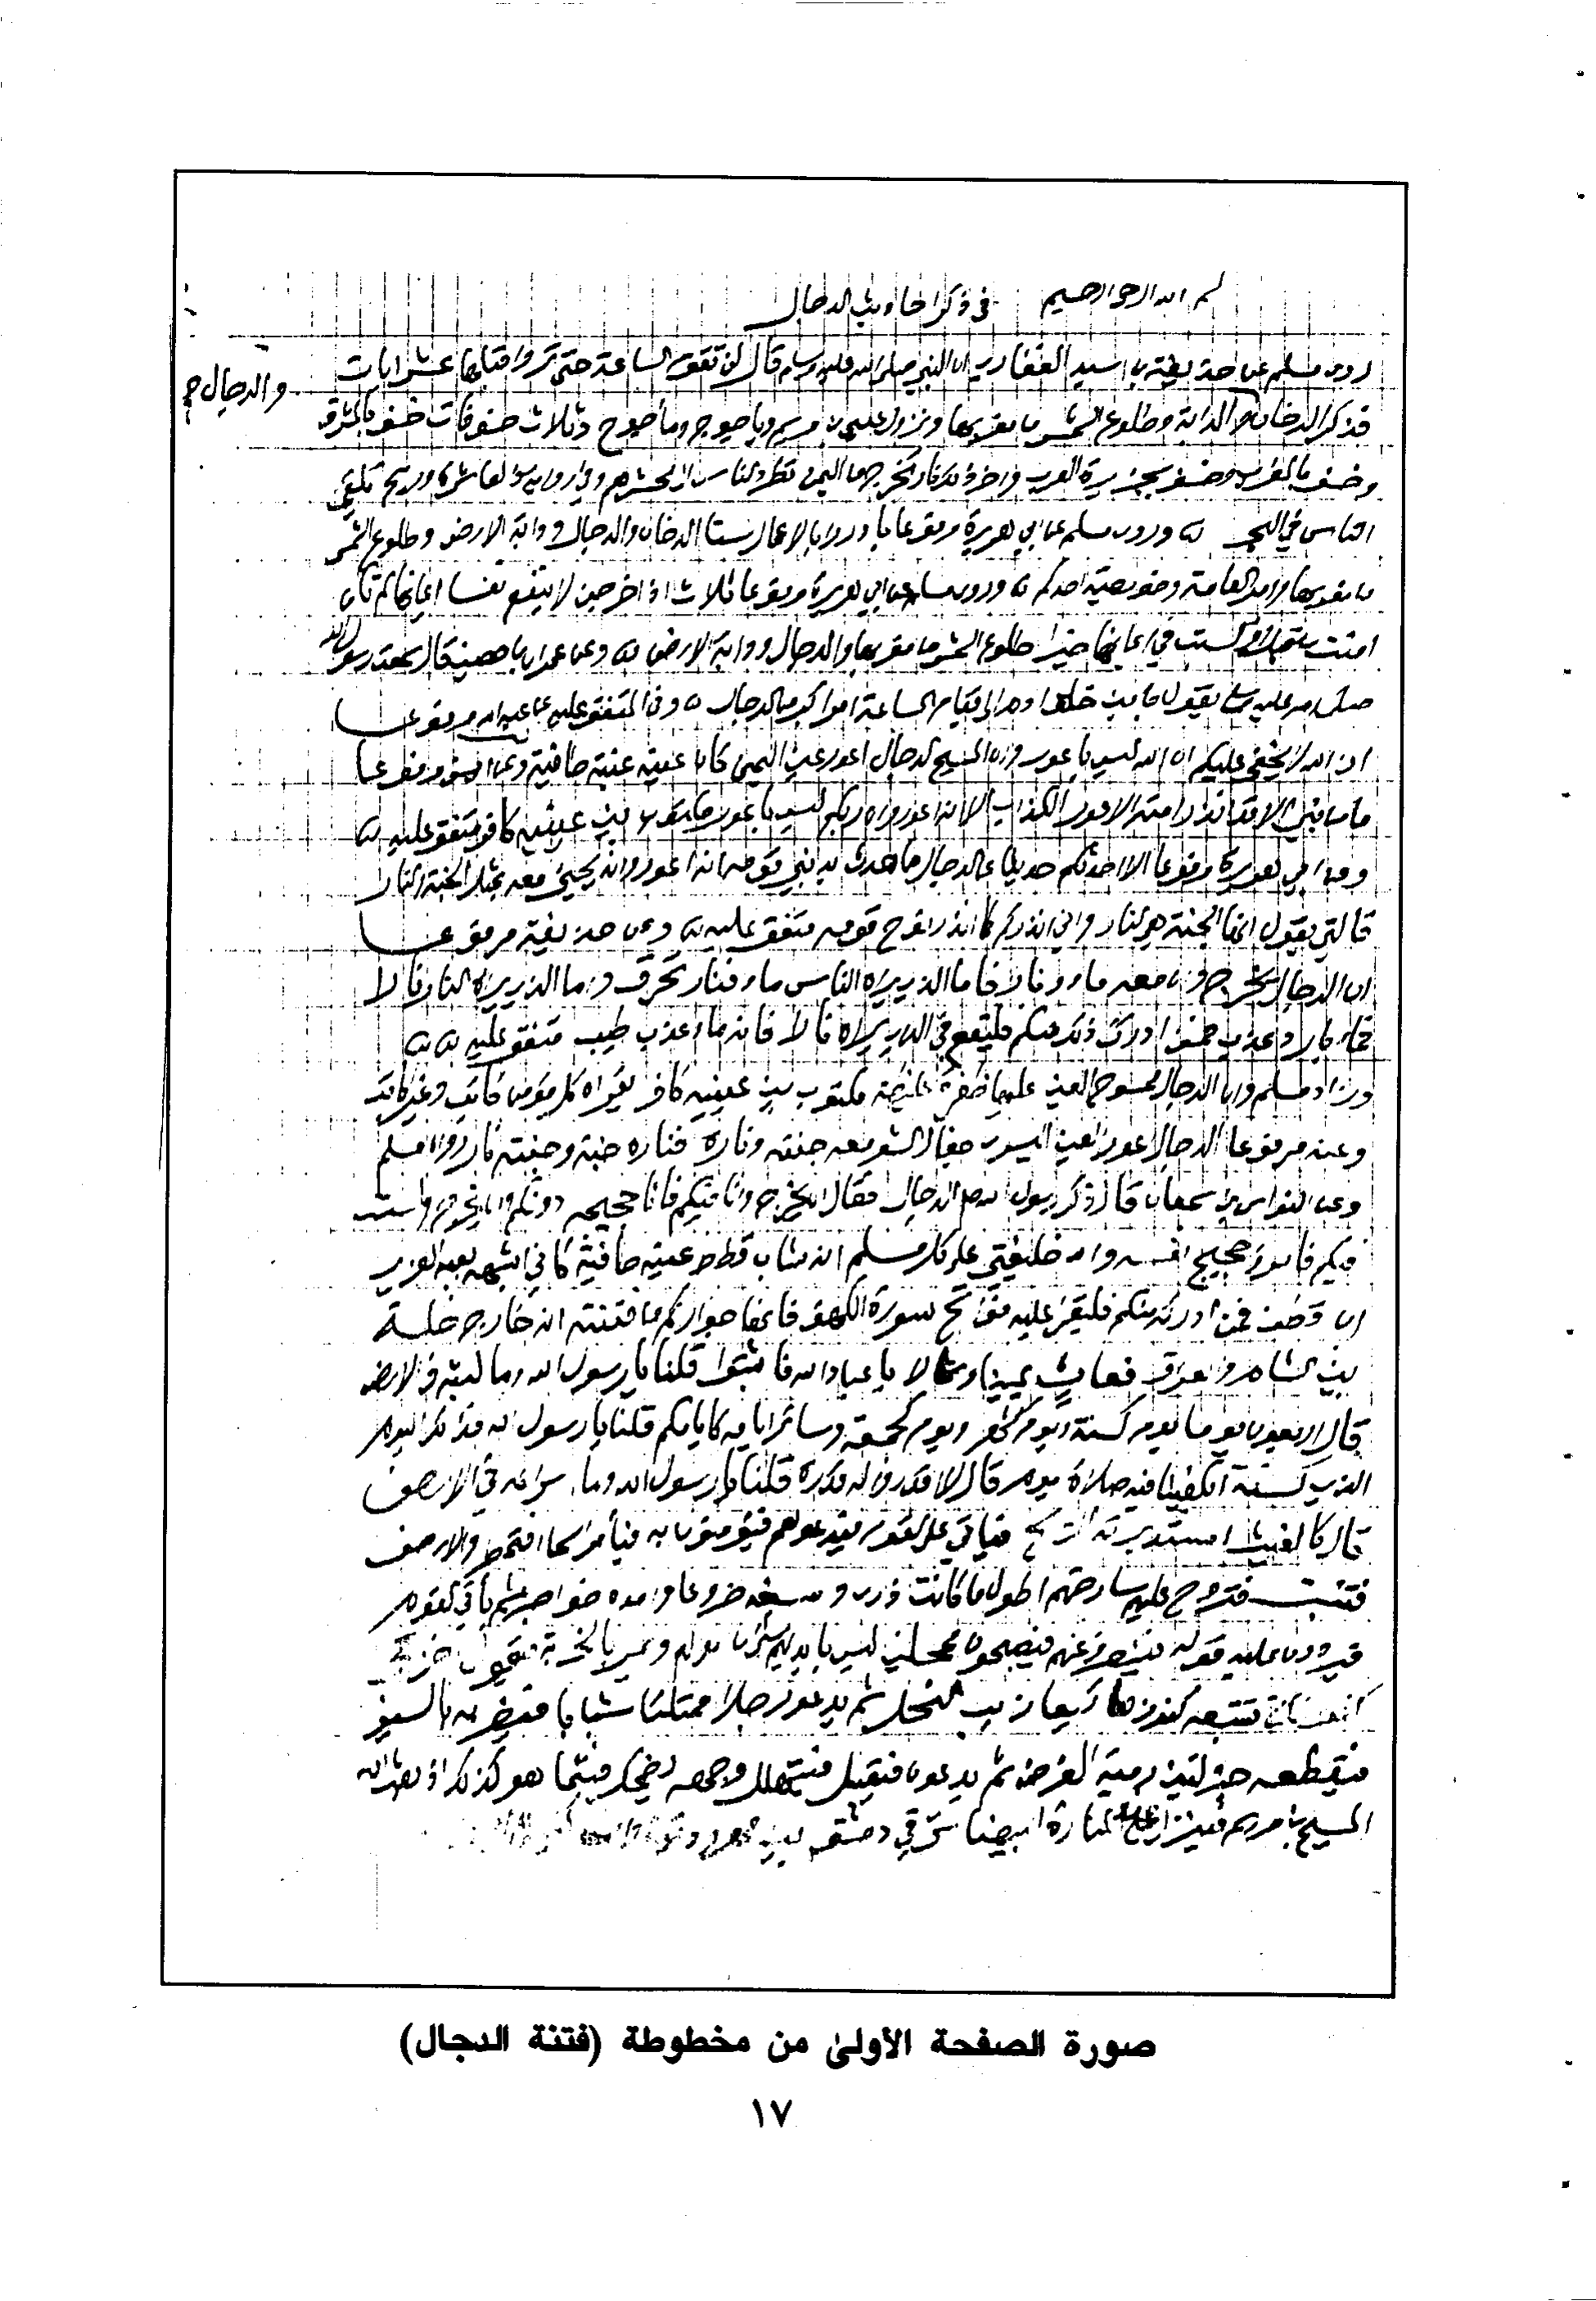 بسم الله الرحمن الرحيم في ذكر احاديث الدجال
روى مسلم عن حذيفة بن اسيد الغفاري ان النبي صلى الله عليه وسلم قال لن تقوم الساعة حتى تروا قبلها عشر ايات
والدجال
فذكر الدخان والدابة وطلوع الشمس من مغربها ونزول عيسى بن مريم وياجوج ومأجوج وثلاث خسوفات خسف بالمشرق
وخسف بالمغرب وخسف بجزيرة العرب واخر ذلك نار تخرج من اليمن تطرد الناس الى محشرهم وفي رواية في العاشرة وريح تلقي
الناس في البحر وروى مسلم عن ابي هريرة مرفوعا بادروا بالاعمال ستا الدخان والدجال ودابة الارض وطلوع الشمس
من مغربها وامر العامة وخويصة احدكم وروى مسلم عن ابي هريرة مرفوعا ثلاث اذا خرجن لا ينفع نفسا ايمانها لم تكن
امنت من قبل او كسبت في ايمانها خيرا طلوع الشمس من مغربها والدجال ودابة الارض وعن عمران بن حصين قال سمعت رسول الله
صلى الله عليه وسلم يقول ما بين خلق ادم الى قيام الساعة امر اكبر من الدجال وفي المتفق عليه عن عبد الله مرفوعا
ان الله لا يخفى عليكم ان الله ليس باعور وان المسيح الدجال اعور عين اليمنى كان عينه عنبة طافية وعن انس مرفوعا
ما من نبي الا قد انذر امته الاعور الكذاب الا انه اعور وان ربكم ليس باعور مكتوب بين عينيه كافر متفق عليه
وعن ابي هريرة مرفوعا الا احدثكم حديثا عن الدجال ما حدث به نبي قومه انه اعور وانه يجيئ معه بمثل الجنة والنار
فالتي يقول انها الجنة هي النار واني انذركم كما انذر نوح قومه متفق عليه وعن حذيفة مرفوعا
ان الدجال يخرج وان معه ماء ونارا فاما الذي يراه الناس ماء فنار تحرق واما الذي يراه الناس نارا
فماء بارد وعذب فمن ادرك ذلك منكم فليقع في الذي يراه نارا فانه ماء عذب طيب متفق عليه
وزاد مسلم وان الدجال ممسوح العين عليها ظفرة غليظة مكتوب بين عينيه كافر يقراه كل مؤمن كاتب وغير كاتب
وعنه مرفوعا الدجال اعور العين اليسرى جفال الشعر معه جنته وناره فناره جنة وجنته نار رواه مسلم
وعن النواس بن سمعان قال ذكر رسول الله الدجال فقال ان يخرج وانا فيكم فانا حجيجه دونكم وان يخرج ولست
فيكم فامرؤ حجيج نفسه والله خليفتي على كل مسلم انه شاب قطط عينه طافية كاني اشبهه بعبد العزى
ابن قطن فمن ادركه منكم فليقرا عليه فواتح سورة الكهف فانها جواركم من فتنته انه خارج خلة
بين الشام والعراق فعاث يمينا وشمالا يا عباد الله فاثبتوا قلنا يا رسول الله وما لبثه في الارض
قال اربعون يوما يوم كسنة ويوم كشهر ويوم كجمعة وسائر ايامه كايامكم قلنا يا رسول الله فذلك اليوم
الذي كسنة اتكفينا فيه صلاة يوم قال لا اقدروا له قدره قلنا يا رسول الله وما اسراعه في الارض
قال كالغيث استدبرته الريح فياتي على القوم فيدعوهم فيؤمنون به فيأمر السماء فتمطر والارض
فتنبت فتروح عليهم سارحتهم اطول ما كانت ذرى واسبغه ضروعا وامده خواصر ثم يأتي القوم
فيردون عليه قوله فينصرف عنهم فيصبحون ممحلين ليس بايديهم شئ من اموالهم ويمر بالخربة فيقول اخرجي
كنوزك فتتبعه كنوزها كيعاسيب النحل ثم يدعو رجلا ممتلئا شبابا فيضربه بالسيف
فيقطعه جزلتين رمية الغرض ثم يدعوه فيقبل فيتهلل وجهه يضحك فبينما هو كذلك اذ بعث الله
المسيح بن مريم فينزل على المنارة البيضا شرقي دمشق بين
صورة الصفحة الأولى من مخطوطة (فتنة الدجال)
١٧